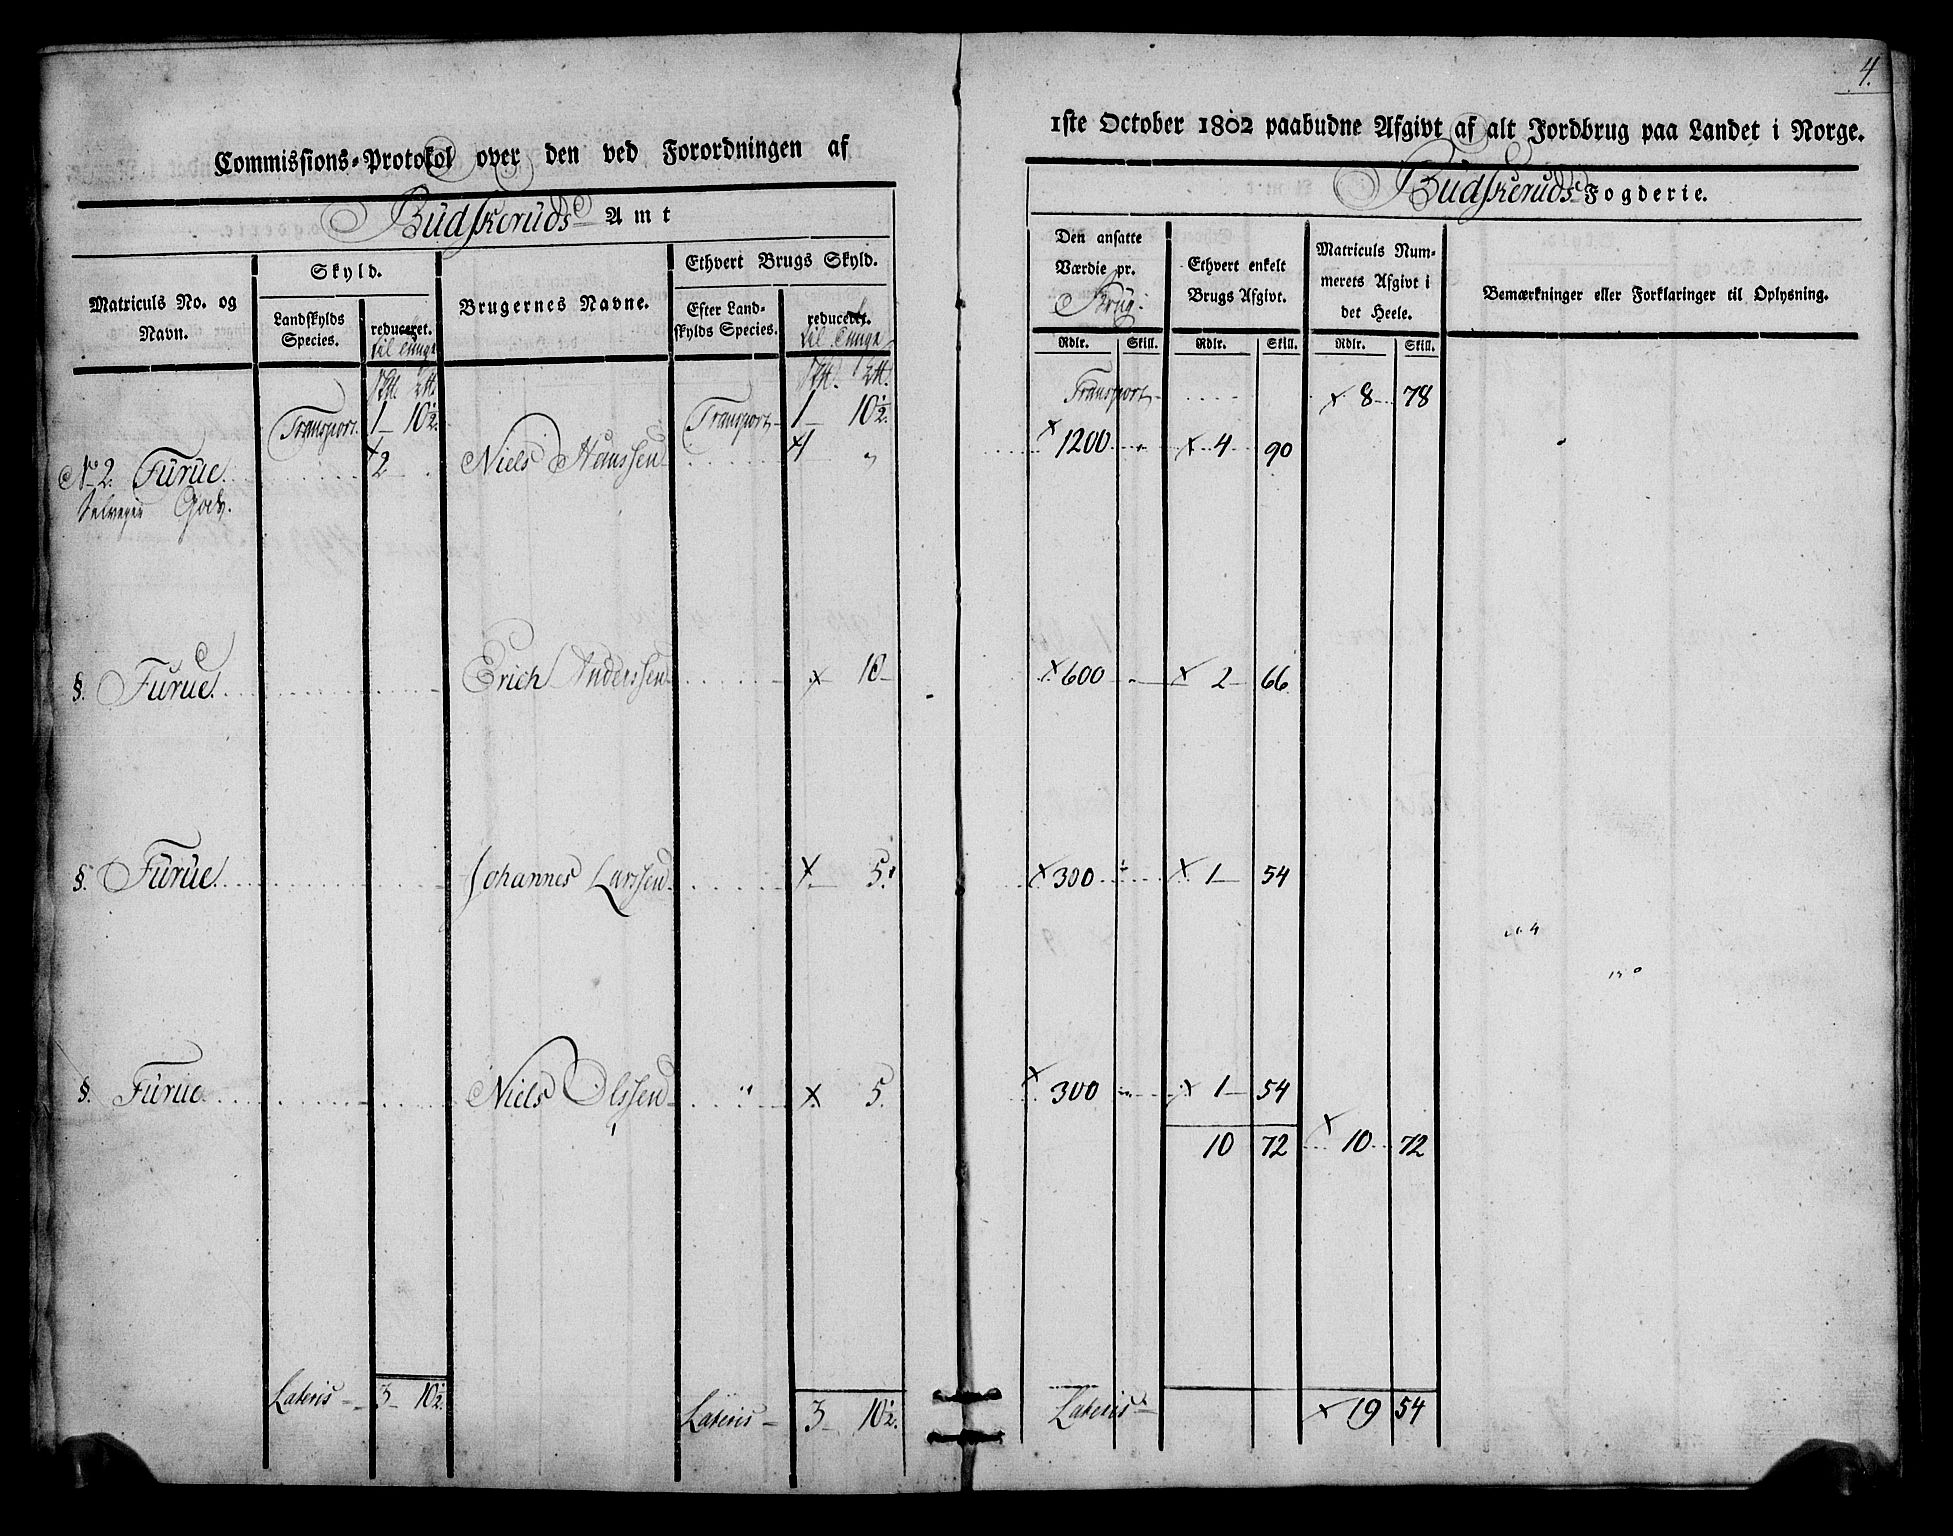 4.
Commissions-Protokol over den ved Forordningen af
1ste October 1802 paabudne Afgivt af alt Jordbrug paa Landet i Norge.
Budskeruds Amt
Budskeruds Fogderie.
Matriculs No. og Navn.
Skyld.
Landskylds Species.
reduceret. til Tunge
Brugernes Navne.
Ethvert Brugs Skyld.
Efter Landskylds Species.
reduceret. til Tunge
Den ansatte Værdie pr. Brug:
Ethvert enkelt Brugs Afgivt.
Matriculs Nummerets Afgivt i det Heele.
Bemærkninger eller Forklaringer til Oplysning.
Rdlr. Skill. Rdlr. Skill. Rdlr. Skill.
Transport. 1 10½. Transport 1 10½. Transport x 8 78
No 2. Furue. 2 Niels Hanssen 1 " x 1200 x 4 90
Selveger Gods.
§. Furue. Erich Anderssen x 10 x 600 x 2 66
§. Furue. Johannes Larssen x 5. x 300 x 1 54
§. Furue. Niels Olssen " x 5. x 300 x 1 54
10 72 x 10 72
Lateris 3 10½. Lateris 3 10½. Lateris x 19 54